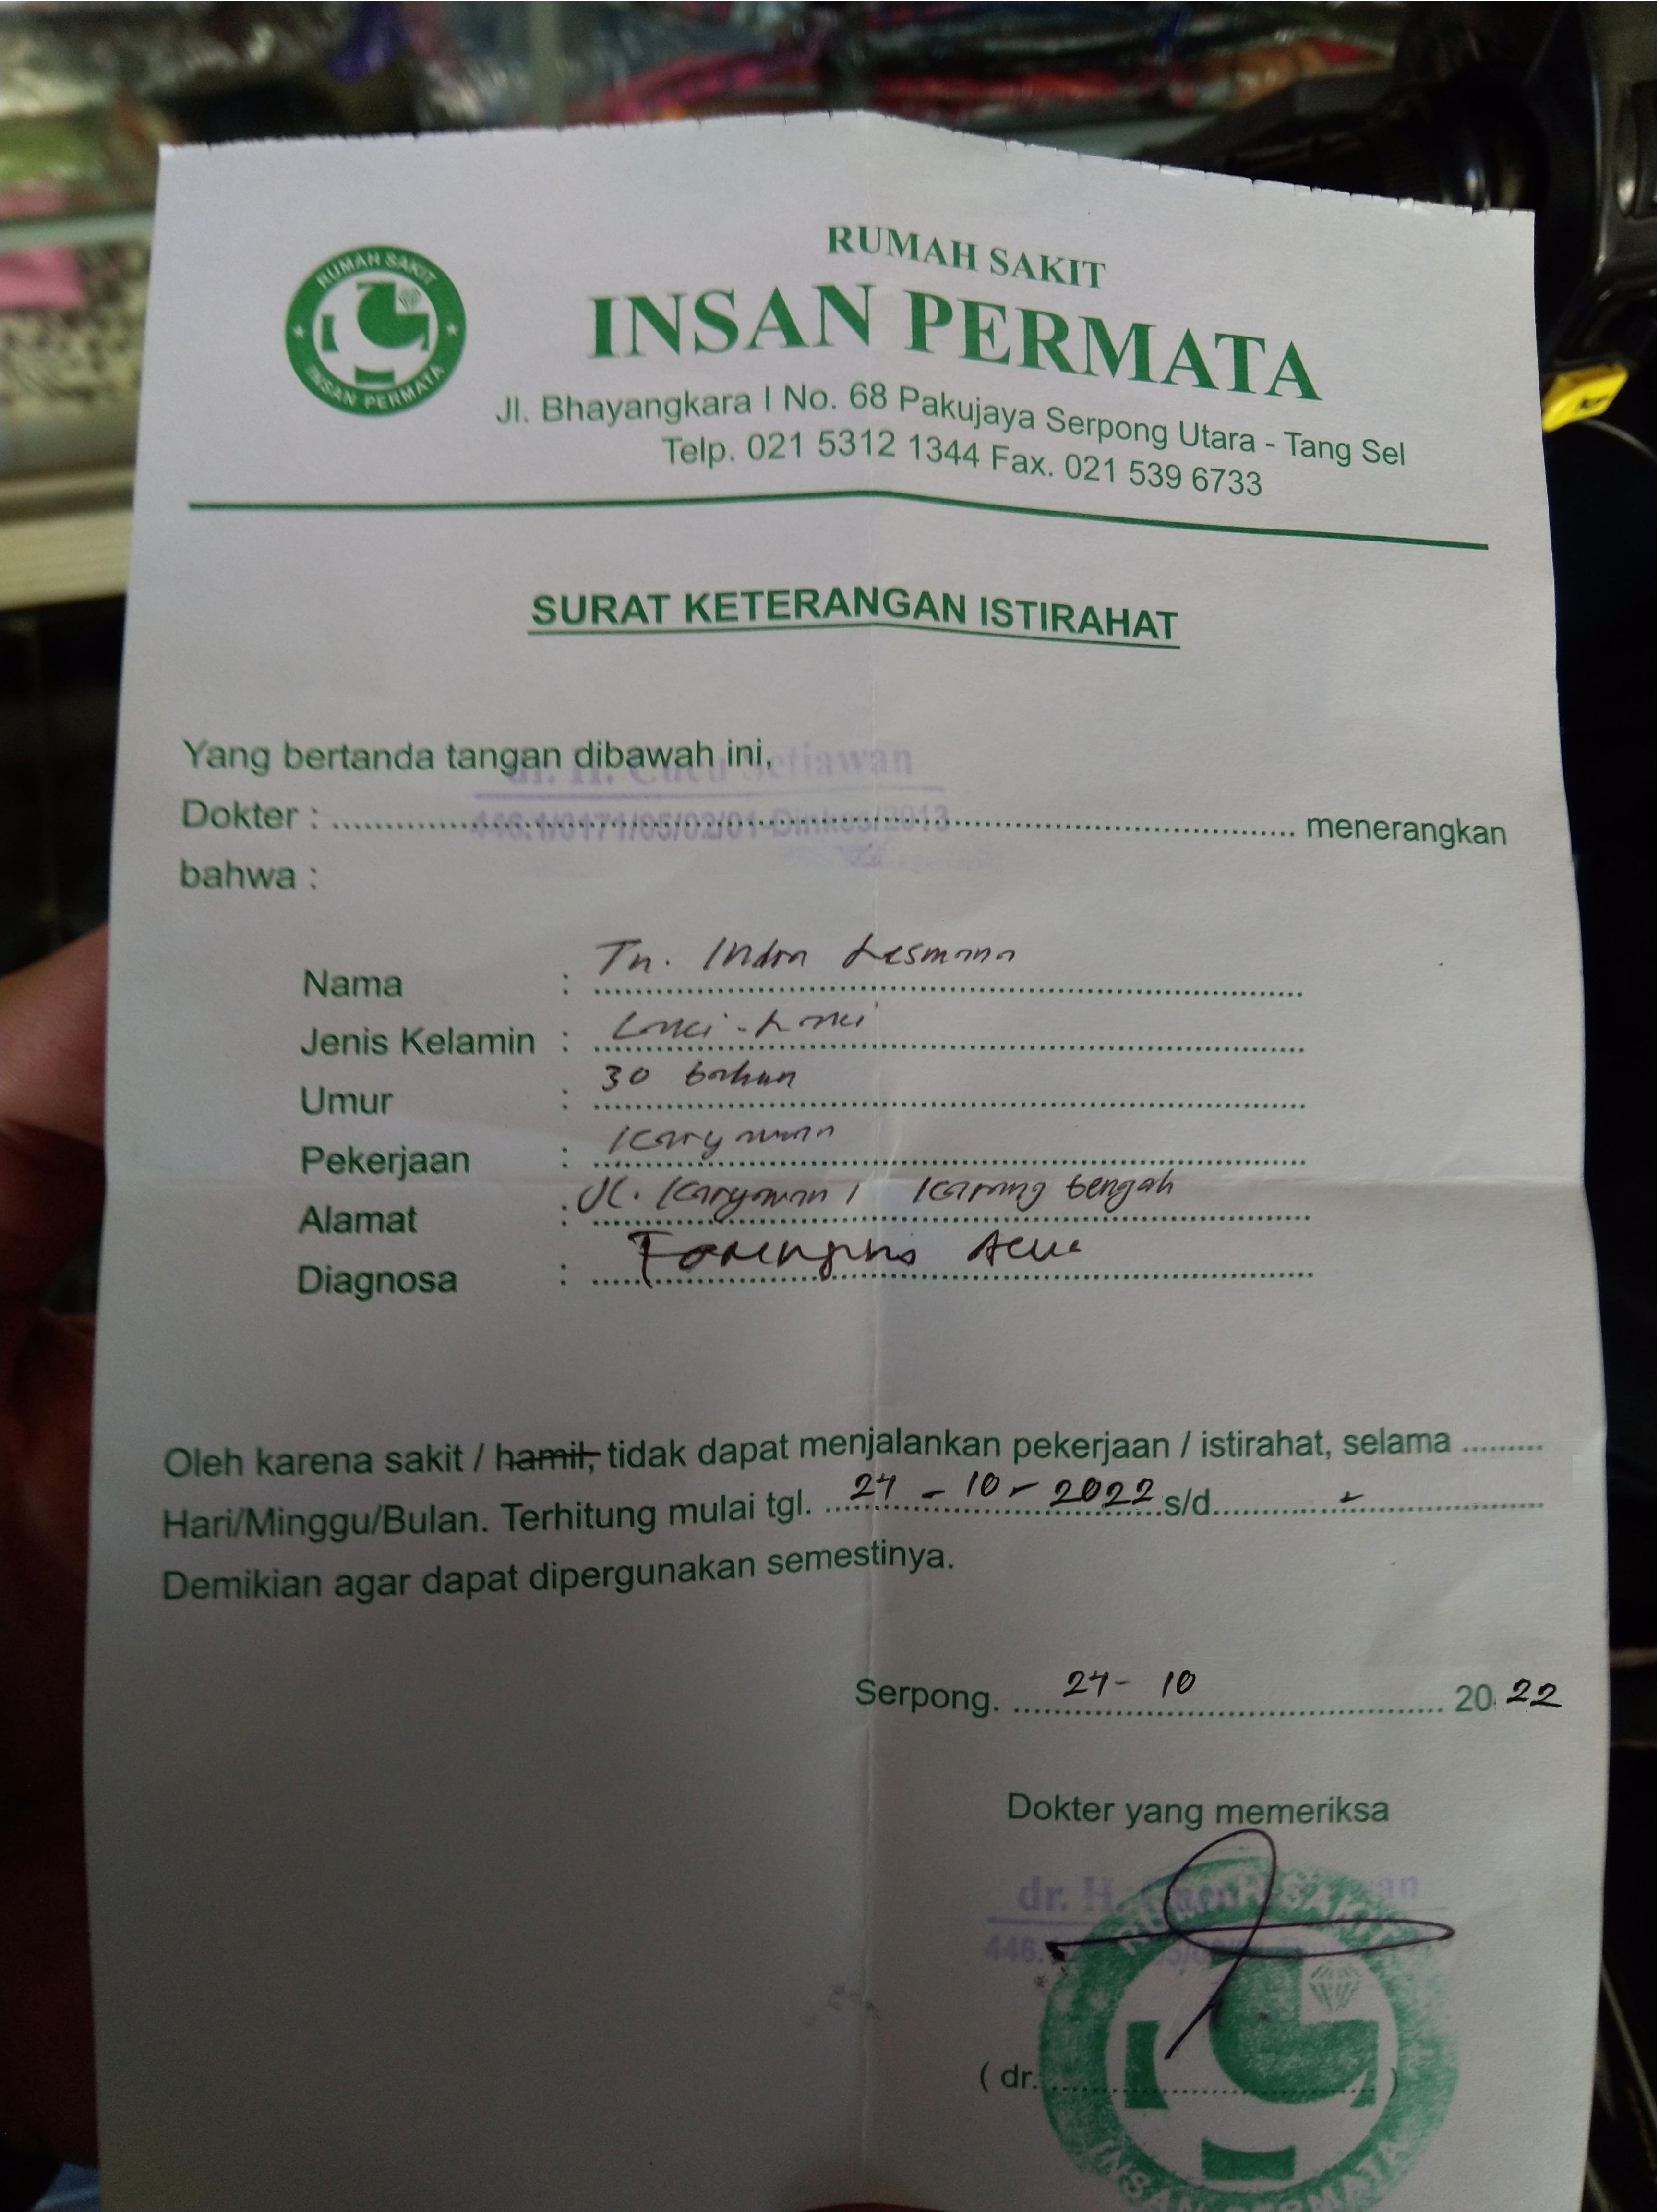 RUMAH SAKIT
INSAN PERMATA
RUMAH SAKIT
INSAN PERMATA
Jl. Bhayangkara I No. 68 Pakujaya Serpong Utara - Tang Sel
Telp. 021 5312 1344 Fax. 021 539 6733
SURAT KETERANGAN ISTIRAHAT
Yang bertanda tangan dibawah ini,
dr. H. Cucu Setiawan
Dokter : menerangkan
446.1/0171/05/02/01-Dinkes/2013
bahwa :
Nama : Tn. Indra Lesmana
Jenis Kelamin : Laki-Laki
Umur : 30 tahun
Pekerjaan : Karyawan
Alamat : Jl. Karyawan 1 Karang tengah
Diagnosa :
Oleh karena sakit / hamil, tidak dapat menjalankan pekerjaan / istirahat, selama .........
Hari/Minggu/Bulan. Terhitung mulai tgl. 24 - 10 - 2022 s/d
Demikian agar dapat dipergunakan semestinya.
Serpong. 24 - 10 2022
Dokter yang memeriksa
dr. H.
446.
( dr. )
INSAN PERMATA